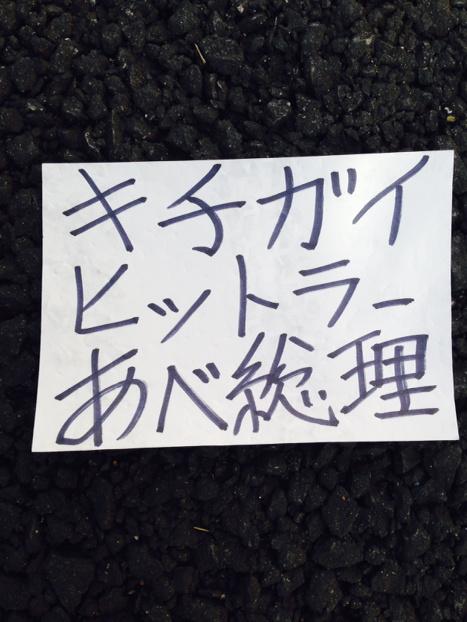 キチガイ
ヒットラー
あべ総理